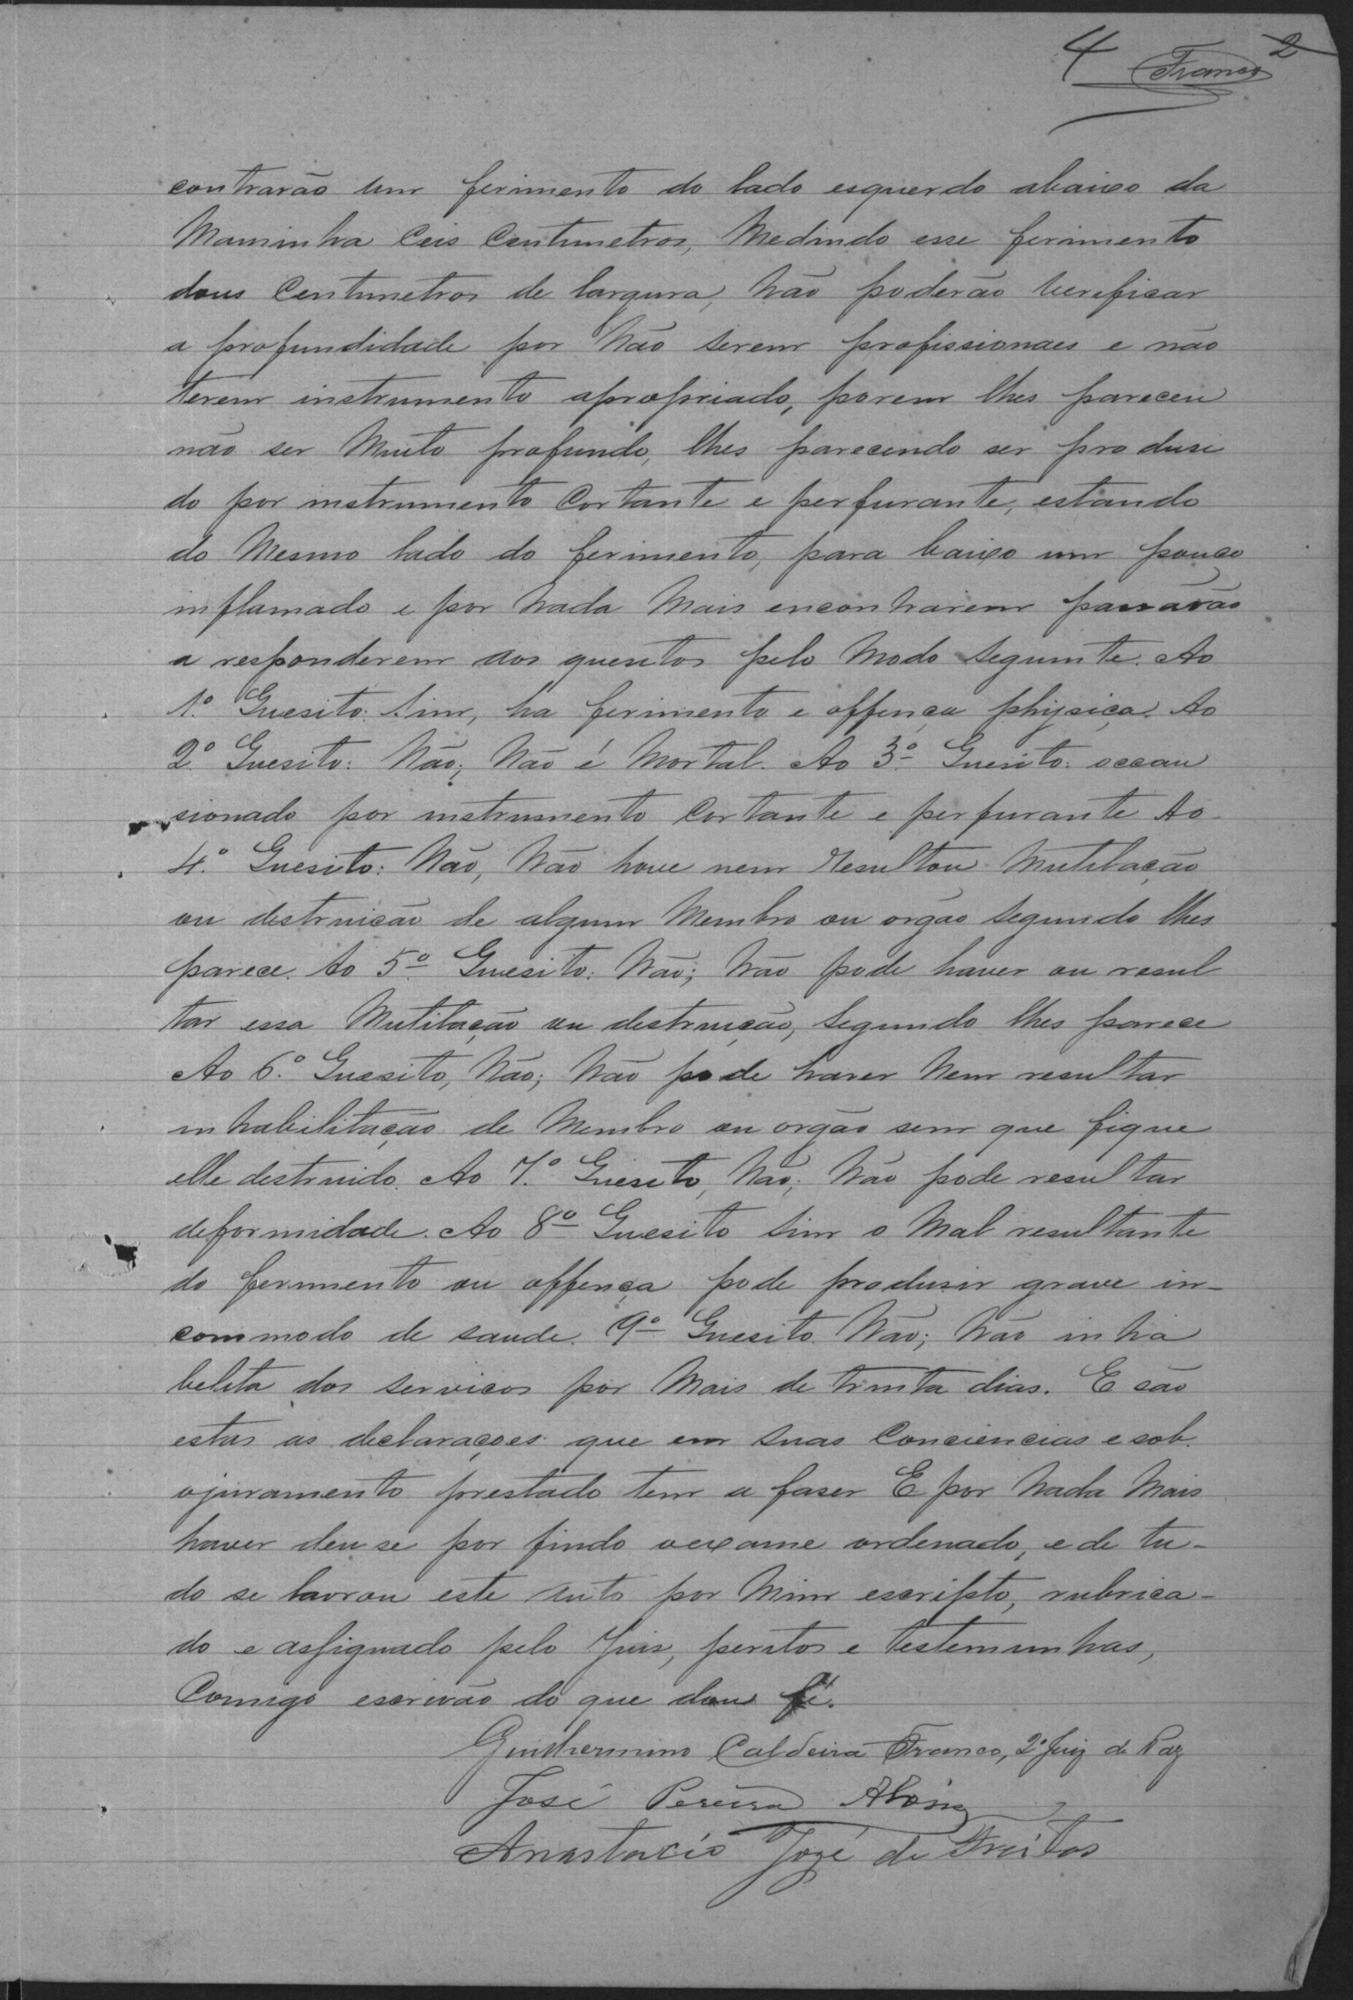 4 Franco 2
contrarão um ferimento do lado esquerdo abaixo da
Maminha Ceis Centimetros, Medindo esse ferimento
dous Centimetros de largura, Não poderão verificar
a profundidade por Não serem profissionaes e não
terem instrumento apropriado, porem lhes pareceu
não ser Muito profundo, lhes parecendo ser produsi
do por instrumento Cortante e perfurante, estando
do Mesmo lado do ferimento, para baixo um pouco
inflamado e por Nada Mais encontrarem passarão
a responderem aos quesitos pelo Modo Seguinte. Ao
1º Quesito: Sim, ha ferimento e offença physica. Ao
2º Quesito: Não; Não é Mortal. Ao 3º Quesito: occau
sionado por instrumento Cortante e perfurante Ao
4º Quesito: Não, Não houve nem Resultou Mutilação
ou destruição de algum Membro ou orgão Segundo lhes
parece. Ao 5º Quesito: Não; Não pode haver ou resul
tar essa Mutilação ou destruição, Segundo lhes parece
Ao 6º Quesito, Não; Não pode haver Nem resultar
inhabilitação de Membro ou orgão sem que fique
elle destruido. Ao 7º Quesito, Não; Não pode resultar
deformidade. Ao 8º Quesito Sim o Mal resultante
do ferimento ou offença pode produsir grave in-
commodo de saude. 9º Quesito. Não; Não inha
belita dos serviços por Mais de trinta dias. E são
estas as declarações que em Suas Conciencias e sob
ojuramento prestado tem a faser E por Nada Mais
haver deu se por findo oexame ordenado, e de tu-
do se lavrou este Auto por Mim escripto, rubrica-
do e assignado pelo Juis, peritos e testemunhas,
Comigo escrivão do que dou fé.
Guilhermino Caldeira Franco, 2º Juiz de Paz
José Pereira
Anastacio Jozé de Freitas